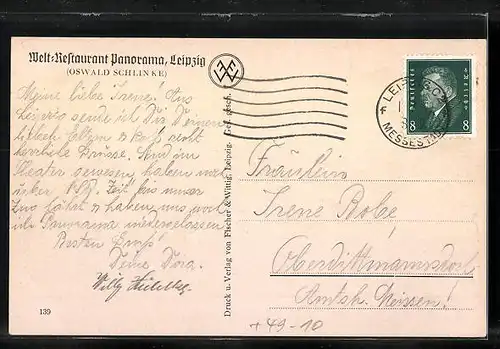 Welt-Restaurant Panorama, Leipzig
(OSWALD SCHLINKE)
Meine liebe Irene! Aus
Leipzig sende ich Dir Deinen
herzliche Grüsse. Sind im
Theater gewesen, haben
Zeit, bis unser
Zug fährt & haben uns
im Panorama niedergelassen.
Besten Gruß!
Deine Dora.
Willy
139
Druck u. Verlag von Fischer & Wittig, Leipzig. Ges. gesch.
LEIPZIG
MESSESTADT
Deutsches Reich
8 8
Fräulein
Irene Bobe,
Oberdittmannsdorf
Amtsh. Meissen!
+49-10